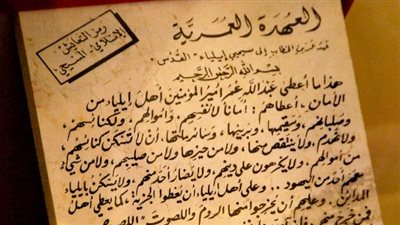 العهدة العمرية
رمز التعايش
الإسلامي المسيحي
عمر بن الخطاب إلى مسيحيي إيلياء - القدس
بسم الله الرحمن الرحيم
هذا ما أعطى عبد الله عمر أمير المؤمنين أهل إيلياء من
الأمان، أعطاهم: أمانا لأنفسهم، وأموالهم، ولكنائسهم،
وصلبانهم، وسقيمها، وبريئها، وسائر ملتها، أن لا تسكن كنائسهم،
ولا تهدم، ولا ينتقص منها، ولا من حيزها ولا من صليبهم، ولا من شيء
من أموالهم، ولا يكرهون على دينهم، ولا يضار أحد منهم، ولا يسكن بإيلياء
معهم أحد من اليهود.. وعلى أهل إيلياء أن يعطوا الجزية، كما يعطي أهل
المدائن. وعليهم أن يخرجوا منها الروم واللصوت